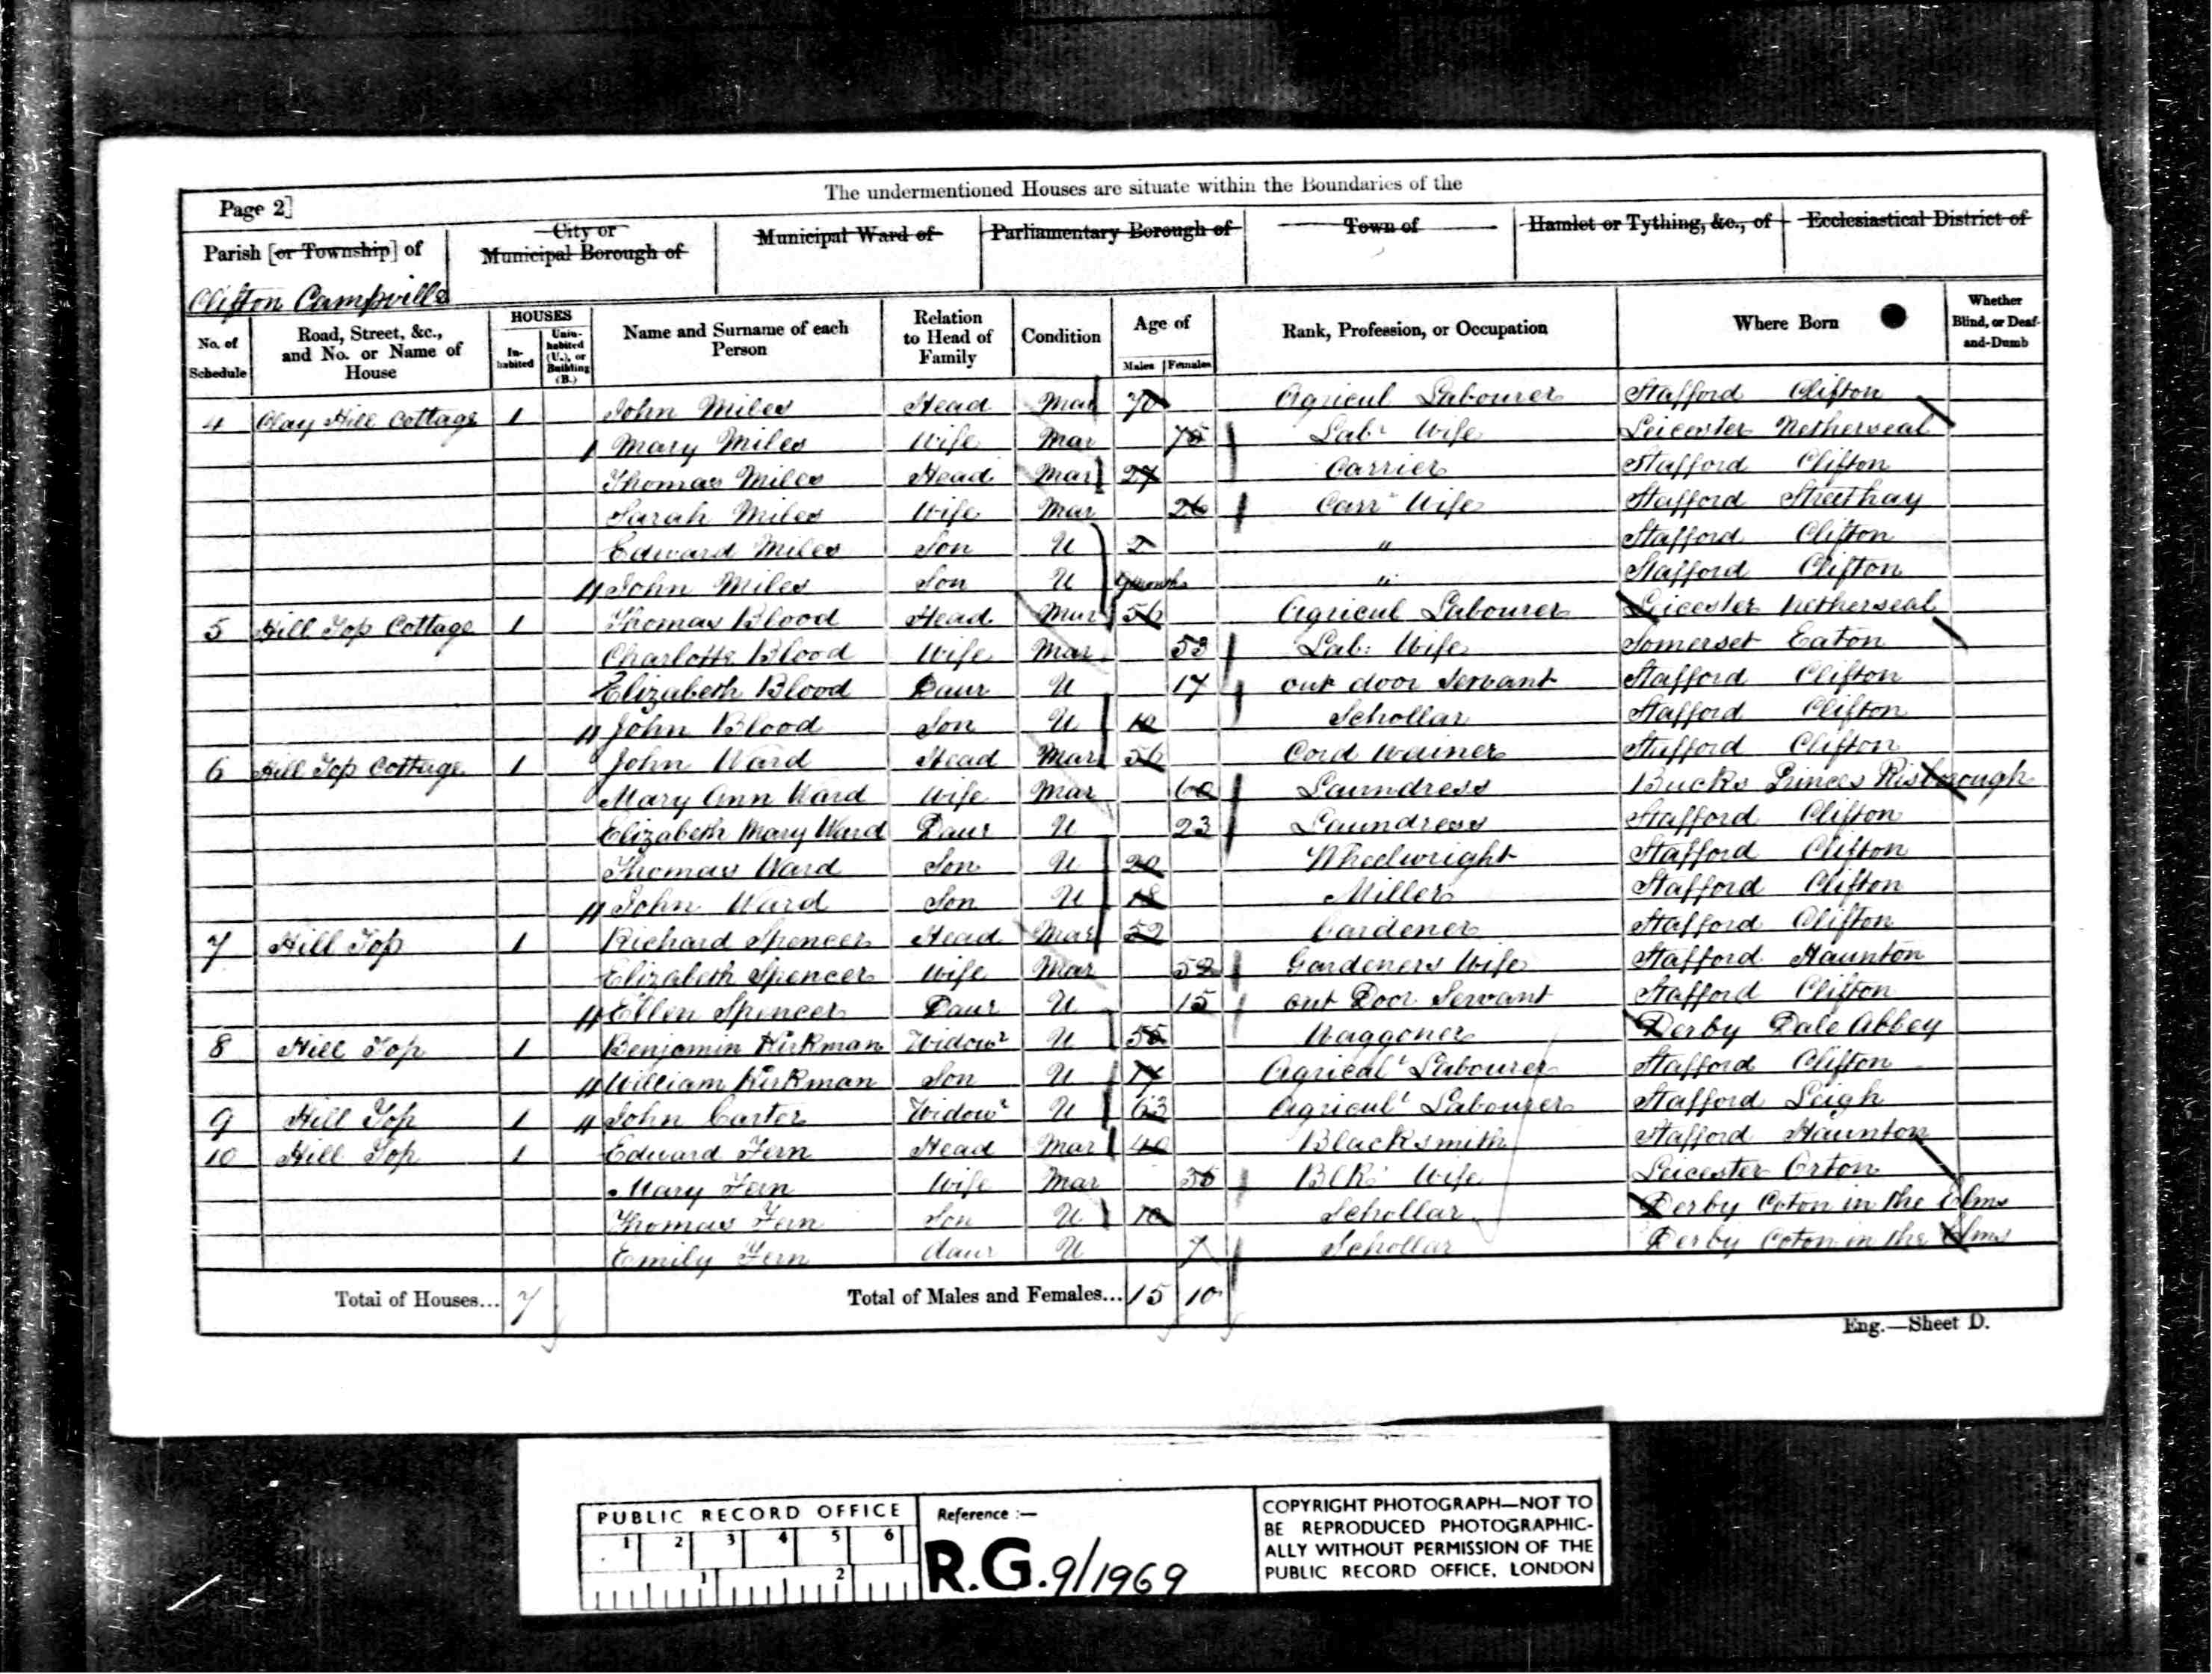 The undermentioned Houses are situate within the Boundaries of the
Page 2]
Parish [or Township] of
City or Municipal Borough of
Municipal Ward of
Parliamentary Borough of
Town of
Hamlet or Tything, &c., of
Ecclesiastical District of
Clifton Campville
No. of Schedule
Road, Street, &c., and No. or Name of House
HOUSES
In-habited
Unin-habited (U.), or Building (B.)
Name and Surname of each Person
Relation to Head of Family
Condition
Age of
Males Females
Rank, Profession, or Occupation
Where Born
Whether Blind, or Deaf-and-Dumb
4 Clay Hill Cottage 1 John Miles Head Mar 70 Agricul Labourer Stafford Clifton
Mary Miles Wife Mar 75 Labr Wife Leicester Netherseal
Thomas Miles Head Mar 27 Carrier Stafford Clifton
Sarah Miles Wife Mar 26 Carrr Wife Stafford Streethay
Edward Miles Son U 2 " Stafford Clifton
John Miles Son U 9 months " Stafford Clifton
5 Hill Top Cottage 1 Thomas Blood Head Mar 56 Agricul Labourer Leicester Netherseal
Charlotte Blood Wife Mar 53 Lab: Wife Somerset Eaton
Elizabeth Blood Daur U 17 out door Servant Stafford Clifton
John Blood Son U 10 Schollar Stafford Clifton
6 Hill Top Cottage 1 John Ward Head Mar 56 Cord wainer Stafford Clifton
Mary Ann Ward Wife Mar 60 Laundress Bucks Princes Risborough
Elizabeth Mary Ward Daur U 23 Laundress Stafford Clifton
Thomas Ward Son U 20 Wheelwright Stafford Clifton
John Ward Son U 18 Miller Stafford Clifton
7 Hill Top 1 Richard Spencer Head Mar 52 Gardener Stafford Clifton
Elizabeth Spencer Wife Mar 52 Gardeners Wife Stafford Haunton
Ellen Spencer Daur U 15 out Door Servant Stafford Clifton
8 Hill Top 1 Benjamin Kirkman Widowr U 55 Waggoner Derby Dale Abbey
William Kirkman Son U 17 Agricull Labourer Stafford Clifton
9 Hill Top 1 John Carter Widowr U 63 Agricull Labourer Stafford Leigh
10 Hill Top 1 Edward Fern Head Mar 40 Blacksmith Stafford Haunton
Mary Fern Wife Mar Blks Wife Leicester Orton
Thomas Fern Son U 10 Schollar Derby Coton in the Elms
Emily Fern daur U 7 Schollar Derby Coton in the Elms
Total of Houses... 7
Total of Males and Females... 15 10
Eng.—Sheet D.
PUBLIC RECORD OFFICE
1 2 3 4 5 6
1 2
Reference :—
R.G. 9/1969
COPYRIGHT PHOTOGRAPH—NOT TO
BE REPRODUCED PHOTOGRAPHIC-
ALLY WITHOUT PERMISSION OF THE
PUBLIC RECORD OFFICE, LONDON